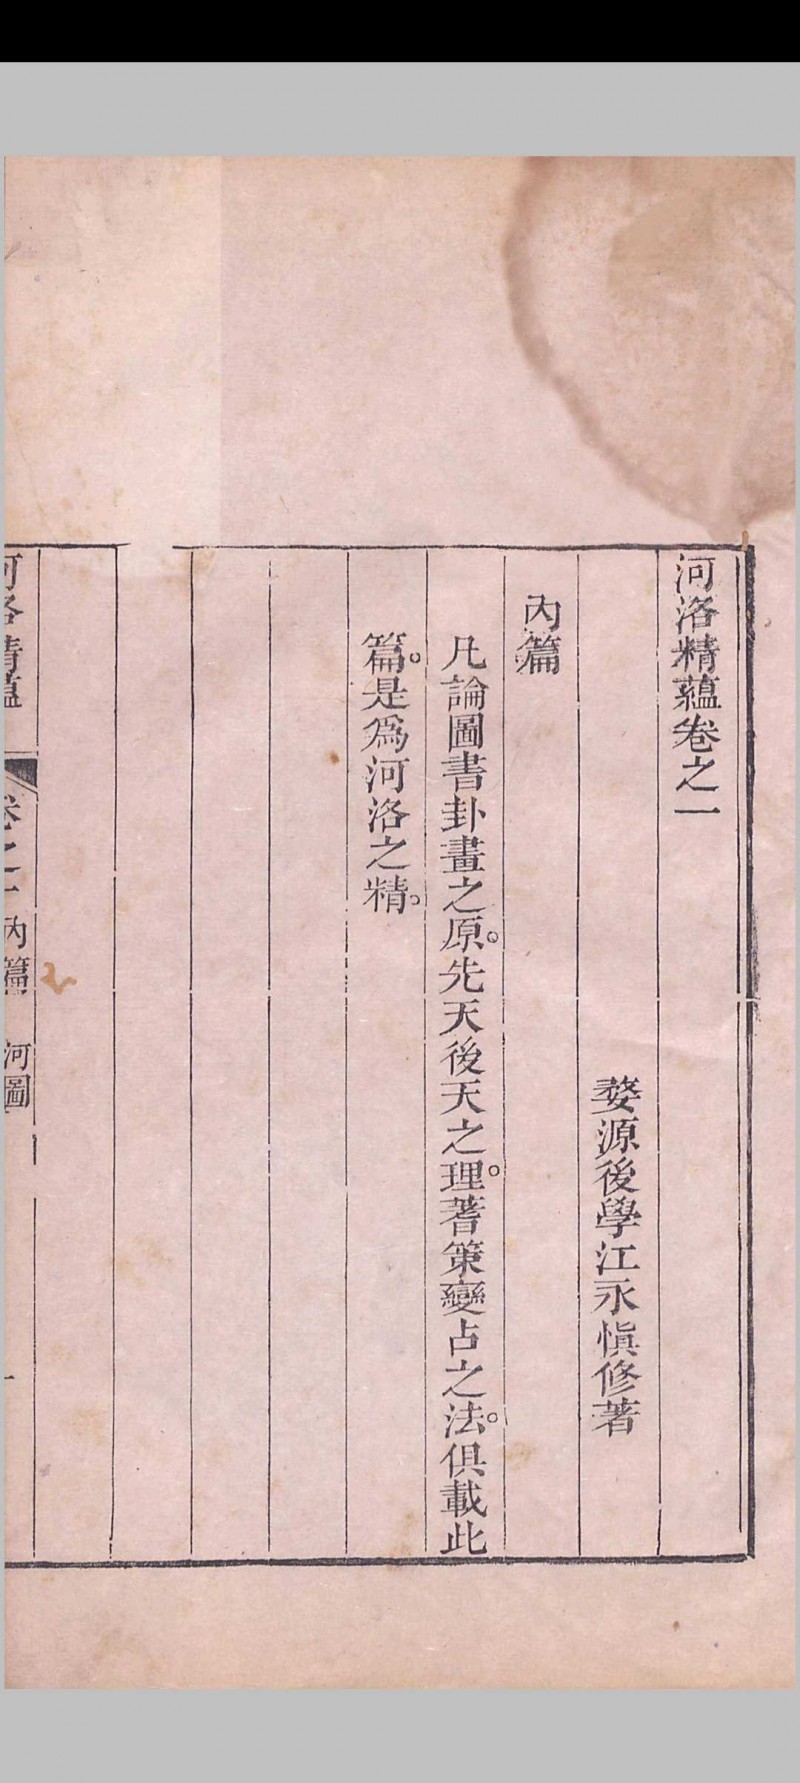 河洛精蘊卷之一
婺源後學江永愼修著
內篇
凡論圖書卦畫之原。先天後天之理。蓍策變占之法。俱載此
篇。是爲河洛之精。
河洛精蘊 卷之一 內篇 河圖 一